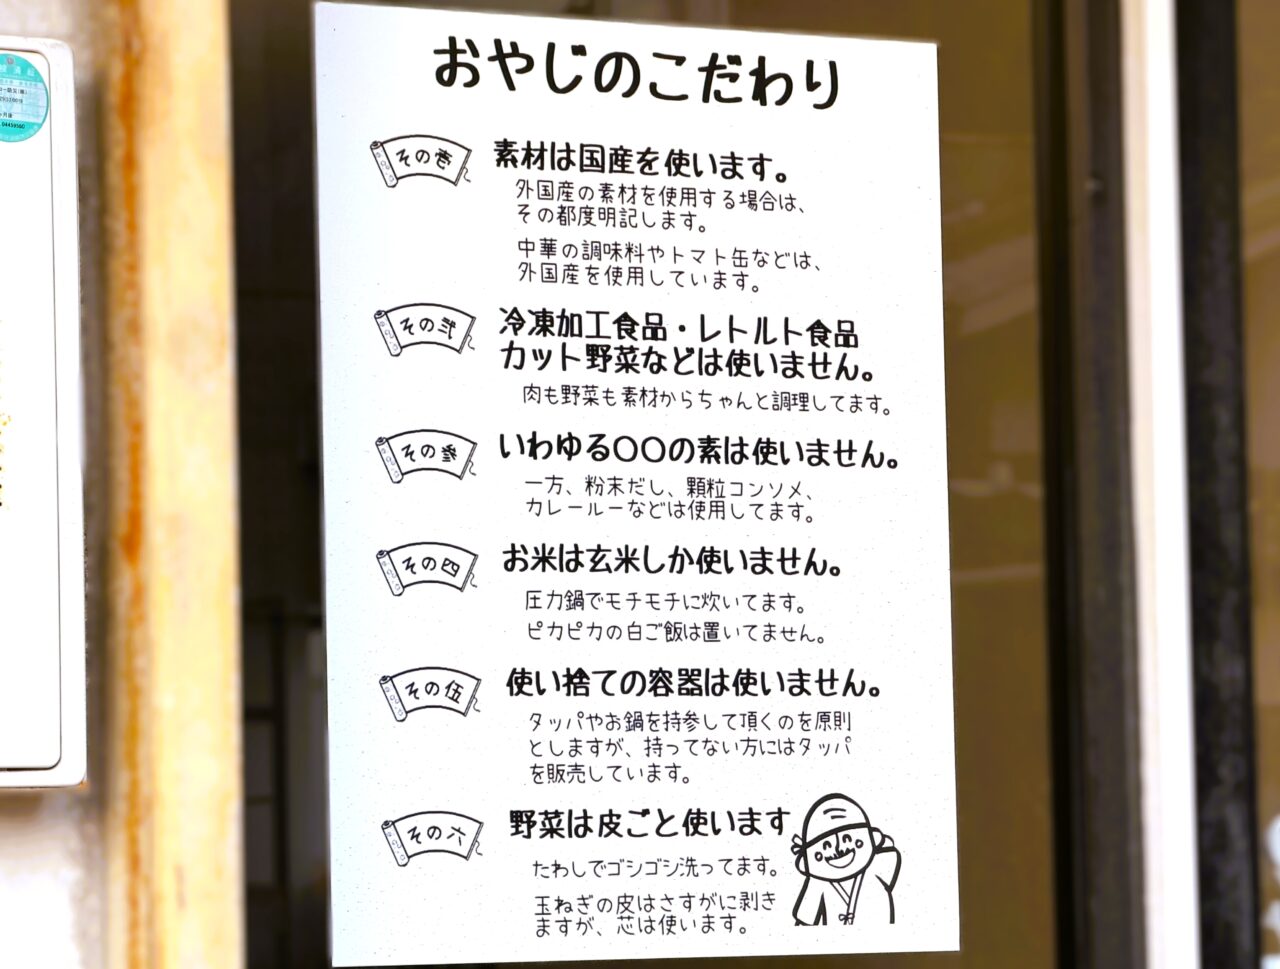 おやじのこだわり
その壱
素材は国産を使います。
外国産の素材を使用する場合は、
その都度明記します。
中華の調味料やトマト缶などは、
外国産を使用しています。
その弐
冷凍加工食品・レトルト食品
カット野菜などは使いません。
肉も野菜も素材からちゃんと調理してます。
その参
いわゆる〇〇の素は使いません。
一方、粉末だし、顆粒コンソメ、
カレールーなどは使用してます。
その四
お米は玄米しか使いません。
圧力鍋でモチモチに炊いてます。
ピカピカの白ご飯は置いてません。
その伍
使い捨ての容器は使いません。
タッパやお鍋を持参して頂くのを原則
としますが、持ってない方にはタッパ
を販売しています。
その六
野菜は皮ごと使います
たわしでゴシゴシ洗ってます。
玉ねぎの皮はさすがに剥き
ますが、芯は使います。